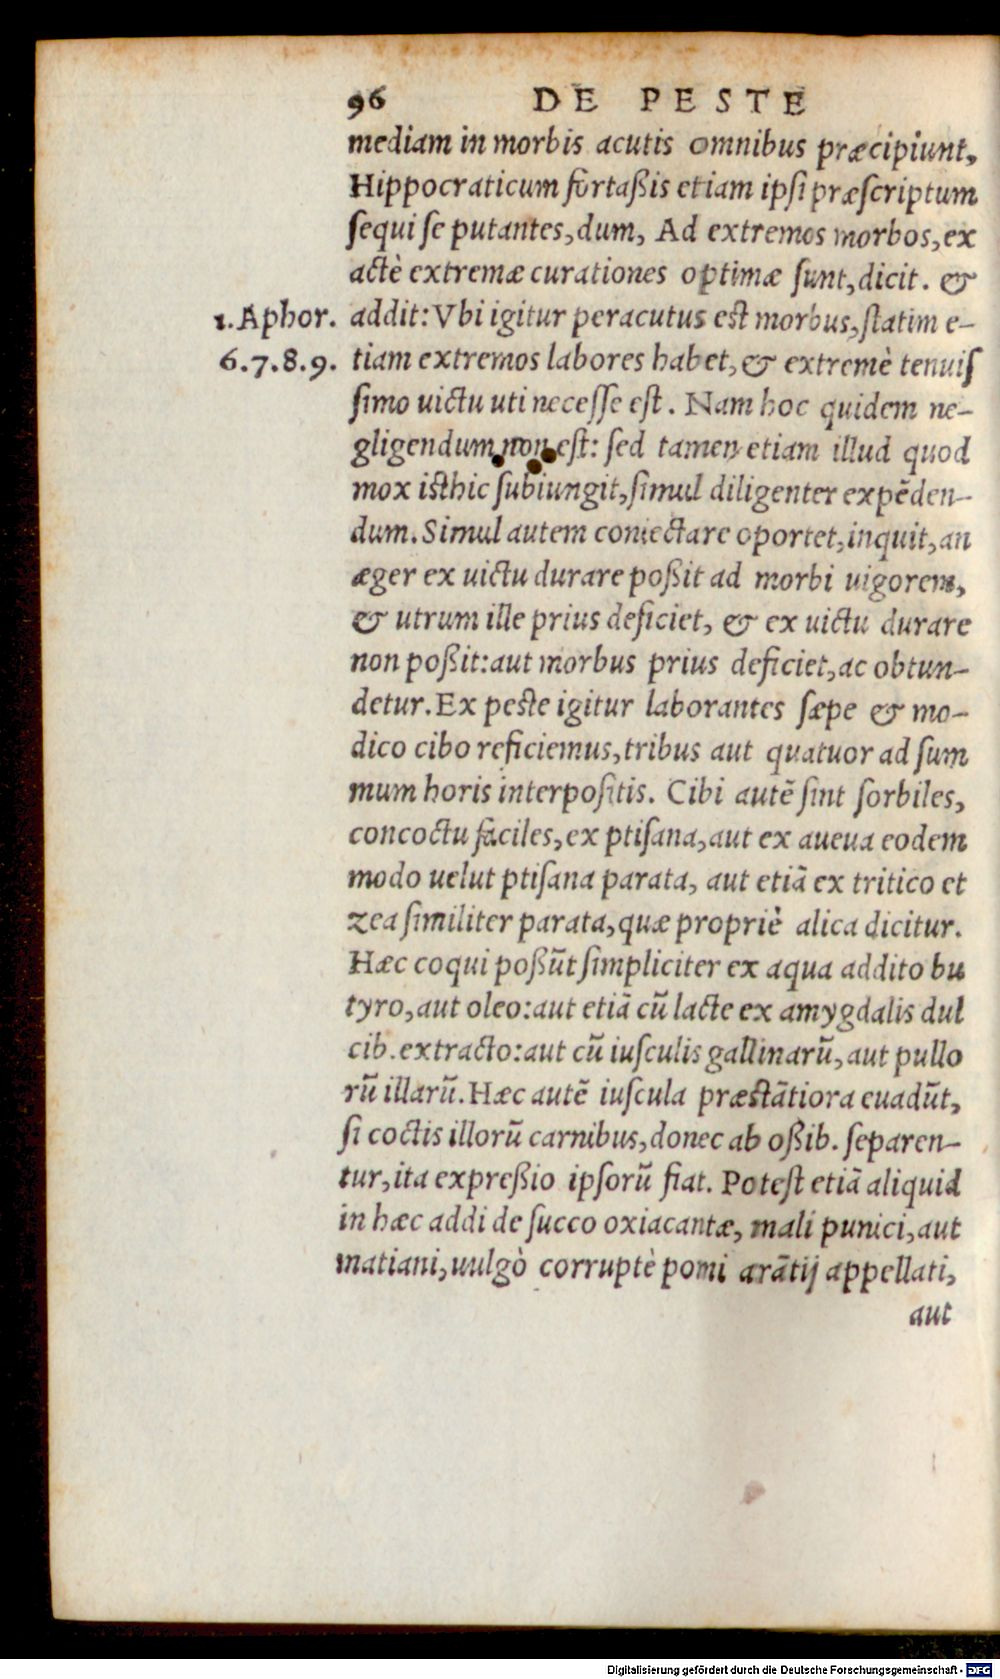 96 DE PESTE
mediam in morbis acutis omnibus præcipiunt,
Hippocraticum fortaßis etiam ipsi præscriptum
sequi se putantes, dum, Ad extremos morbos, ex
actè extremæ curationes optimæ sunt, dicit. &
1. Aphor. addit: Vbi igitur peracutus est morbus, statim e-
6.7.8.9. tiam extremos labores habet, & extremè tenuis
simo uictu uti necesse est. Nam hoc quidem ne-
gligendum non est: sed tamen etiam illud quod
mox isthic subiungit, simul diligenter expēden-
dum. Simul autem coniectare oportet, inquit, an
æger ex uictu durare poßit ad morbi uigorem,
& utrum ille prius deficiet, & ex uictu durare
non poßit: aut morbus prius deficiet, ac obtun-
detur. Ex peste igitur laborantes sæpe & mo-
dico cibo reficiemus, tribus aut quatuor ad sum
mum horis interpositis. Cibi autē sint sorbiles,
concoctu faciles, ex ptisana, aut ex aueua eodem
modo uelut ptisana parata, aut etiā ex tritico et
zea similiter parata, quæ propriè alica dicitur.
Hæc coqui poßūt simpliciter ex aqua addito bu
tyro, aut oleo: aut etiā cū lacte ex amygdalis dul
cib. extracto: aut cū iusculis gallinarū, aut pullo
rū illarū. Hæc autē iuscula præstātiora euadūt,
si coctis illorū carnibus, donec ab oßib. separen-
tur, ita expreßio ipsorū fiat. Potest etiā aliquid
in hæc addi de succo oxiacantæ, mali punici, aut
matiani, uulgò corruptè pomi arātij appellati,
aut
Digitalisierung gefördert durch die Deutsche Forschungsgemeinschaft - DFG